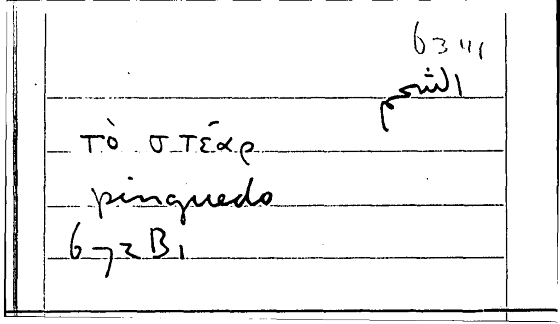 الشحم
τὸ στέαρ
pinguedo
672 B1